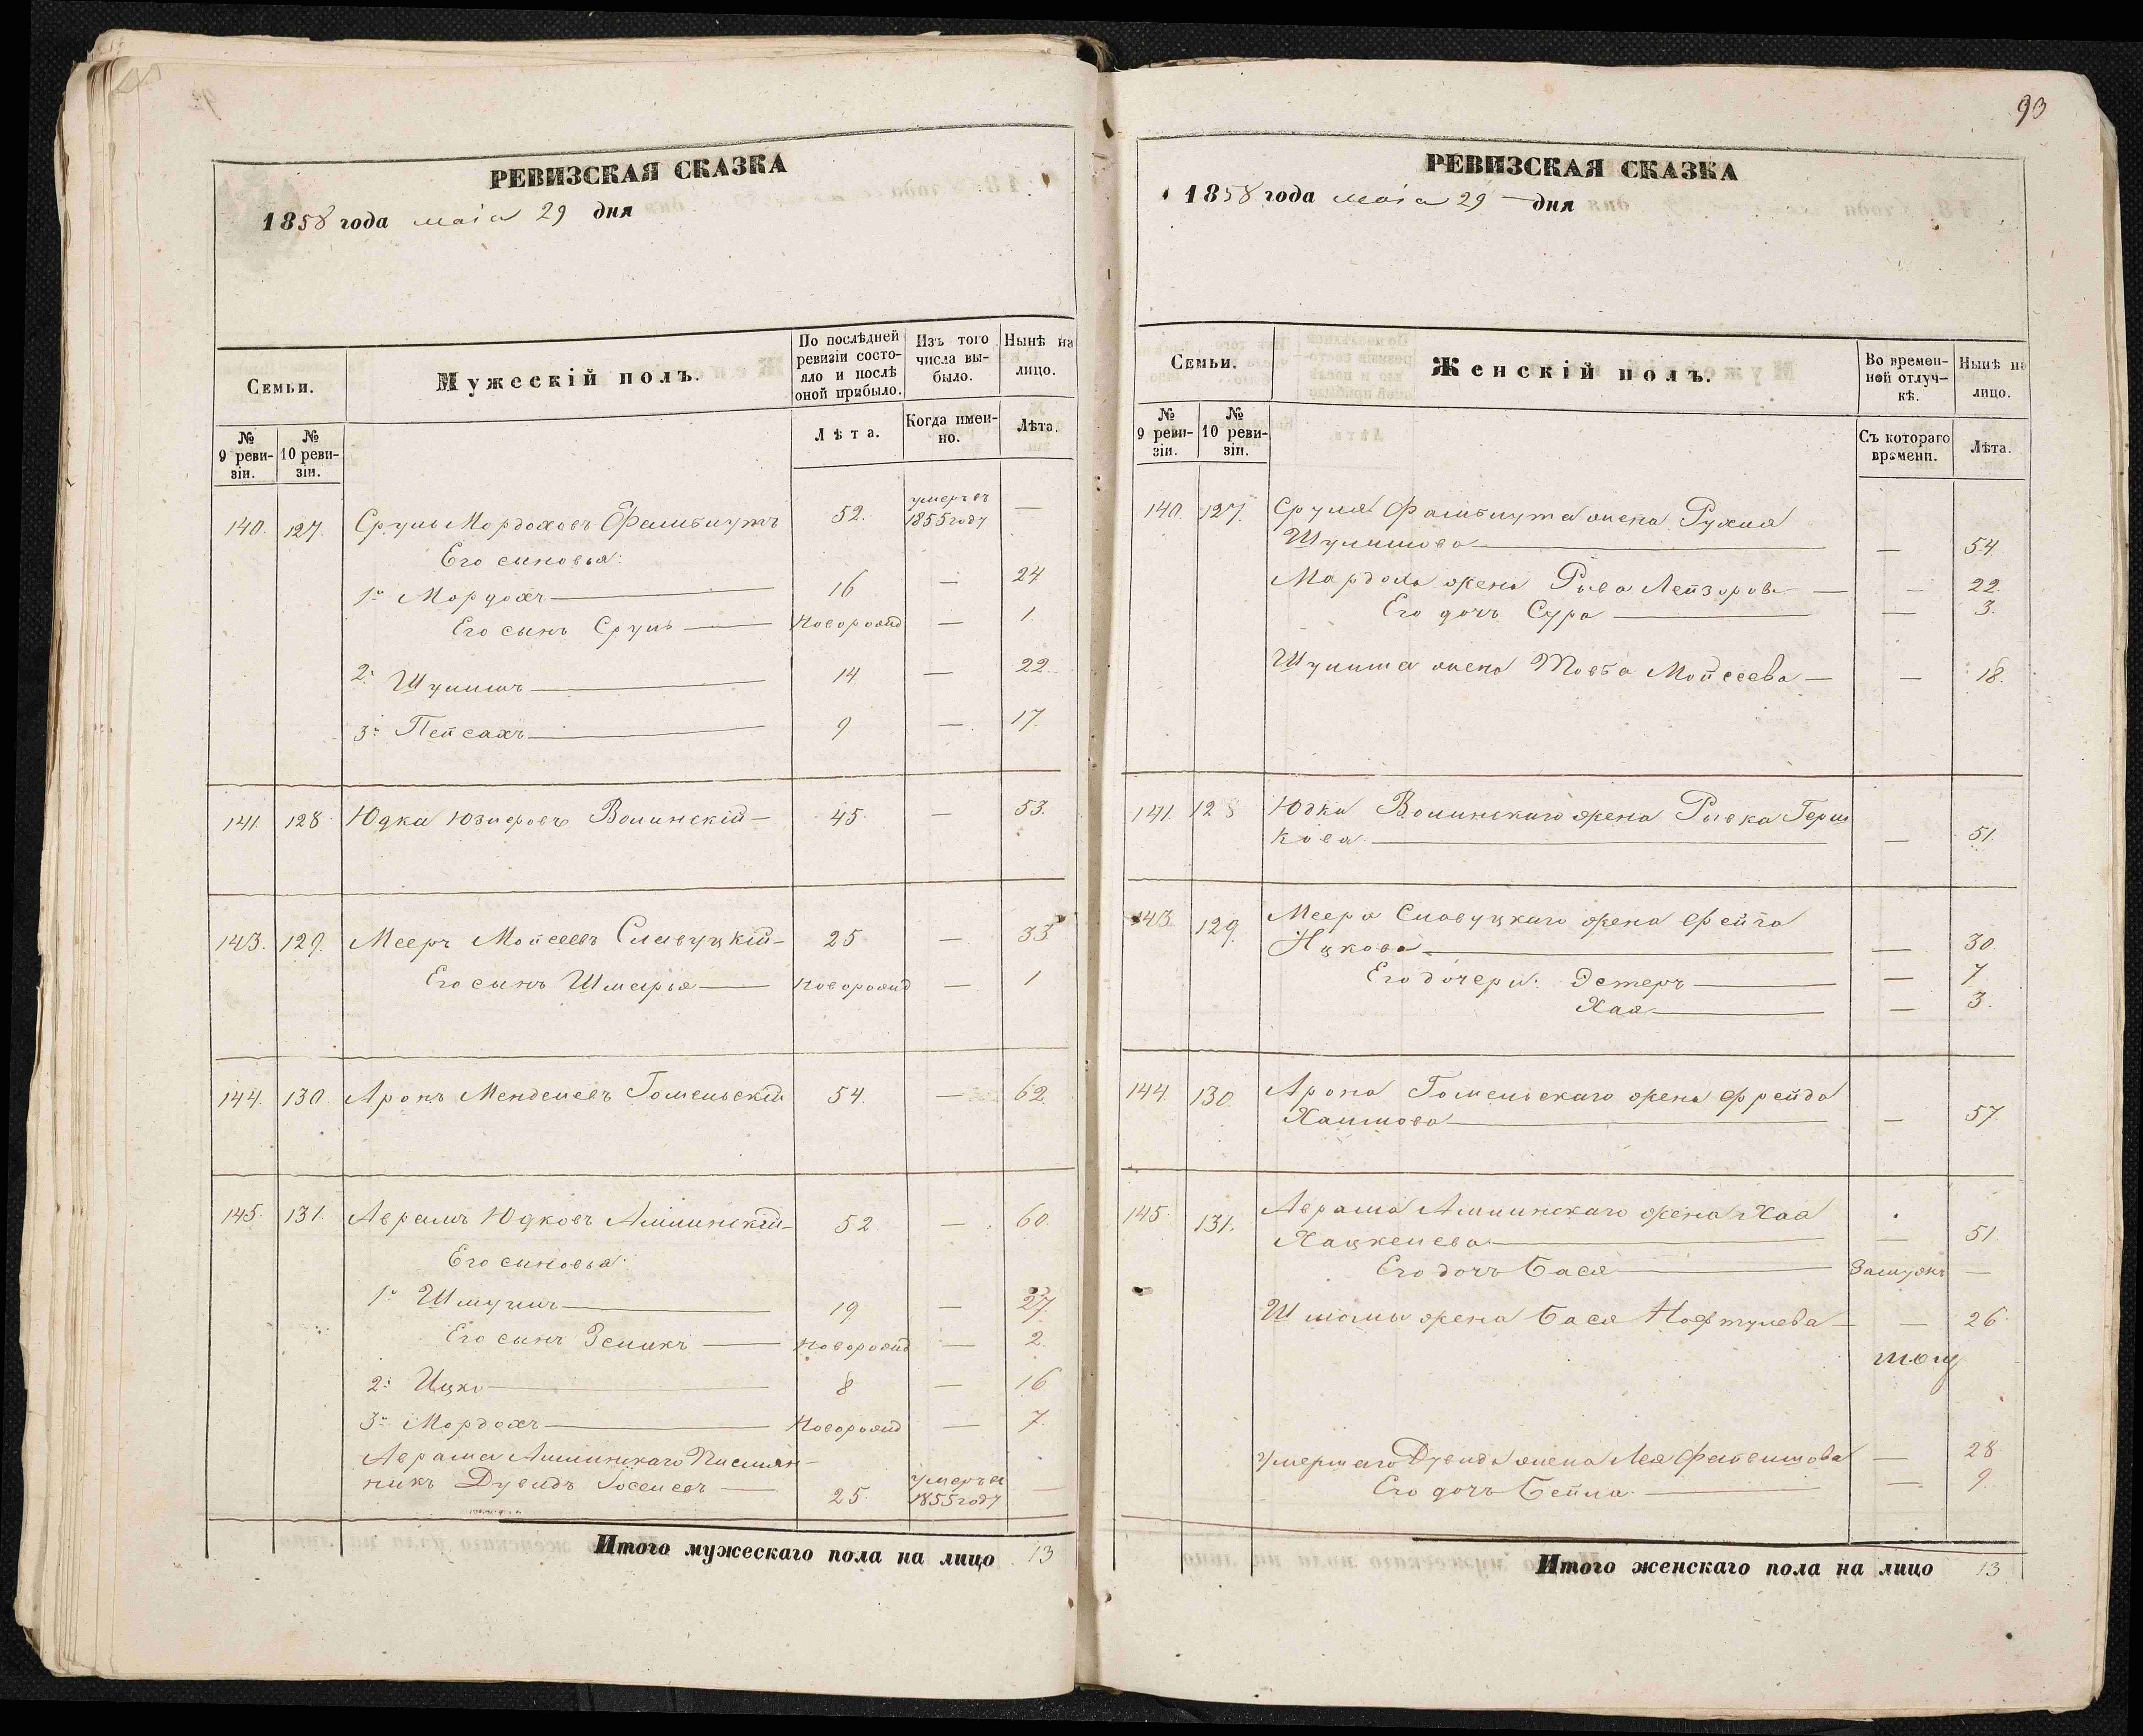 РЕВИЗСКАЯ СКАЗКА
1858 года маiя 29 дня
Семьи.
Мужескій полъ.
По послѣдней ревизіи состо-
яло и послѣ
оной прибыло.
Изъ того
числа вы-
было.
Нынѣ на
лицо.
№
9 реви-
зіи.
№
10 реви-
зіи.
Лѣта.
Когда имен-
но.
Лѣта.
140. 127. Сруль Мордоховъ 52. умеръ въ 1855 году —
Его сыновья:
1й Мордохъ — 16 — 24
Его сынъ Сруль — новорожд — 1.
2й Шулимъ — 14 — 22.
3й Пейсахъ — 9 — 17.
141. 128 Юдка Юзифовъ Волинскій — 45 — 53.
143. 129. Мееръ Мойсеевъ Славуцкій — 25 — 33
Его сынъ Шмарья — новорожд — 1
144. 130. Аронъ Менделевъ Гомельскій 54. — 62.
145. 131. Аврамъ Юдковъ 52. — 60.
Его сыновья:
1й Шмулъ — 19 — 27.
Его сынъ Зеликъ — новорожд — 2.
2й Ицко — 8 — 16
3й Мордохъ — новорожд — 7.
Аврама Племян-
никъ Дувидъ Іоселевъ — 25. умеръ въ 1855 году —
Итого мужескаго пола на лицо 13
93
РЕВИЗСКАЯ СКАЗКА
1858 года маiя 29 — дня
Семьи.
Женскій полъ.
Во времен-
ной отлуч-
кѣ.
Нынѣ на
лицо.
№
9 реви-
зіи.
№
10 реви-
зіи.
Съ котораго
времени.
Лѣта.
140. 127. Сруля жена Рухля
Шулимова — — 54.
Мордоха жена Рива Лейзорова — — 22.
Его дочь Сура — — 3.
Шулима жена Товба Мойсеева — — 18.
141. 128 Юдки Волинскаго жена Ривка Герш
кова — — 51.
143. 129. Меера Славуцкаго жена Фейга
Ицкова — — 30.
Его дочери: Эстеръ — — 7
Хая — — 3.
144. 130 Арона Гомельскаго жена Фрейда
Хаимова — — 57.
145. 131. Аврама жена Хая
Хацкелева — — 51.
Его дочь Бася — замужъ —
жена Бася Нафтулева — — 26.
Умершаго Дувида жена Лея — 28
Его дочь Бейла — — 9.
Итого женскаго пола на лицо 13